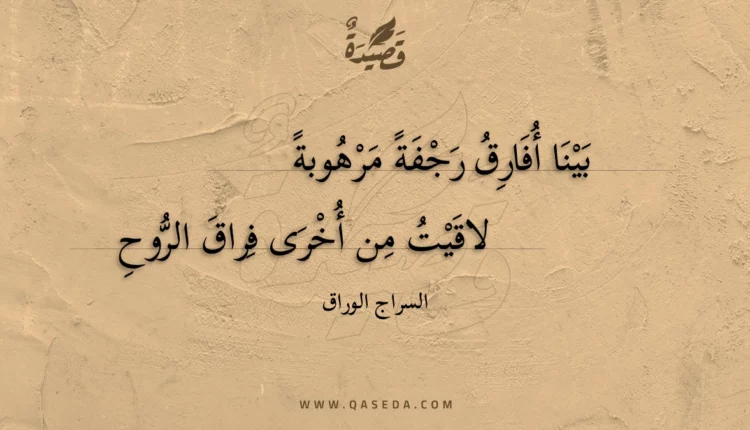 قَصِيْدَةٌ
بَيْنَا أُفَارِقُ رَجْفَةً مَرْهُوبةً
لاقَيْتُ مِن أُخْرَى فِراقَ الرُّوحِ
السراج الوراق
WWW.QASEDA.COM